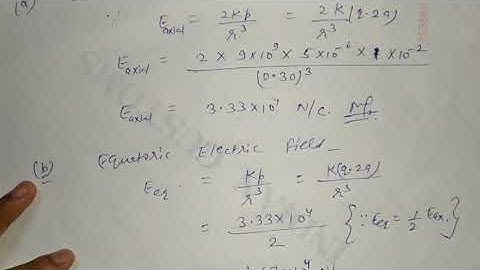 (a) ∵ E_axial = 2Kp / r³ = 2K / r³ (q·2a)
E_axial = 2 × 9×10⁹ × 5×10⁻⁶ × 1×10⁻² / (0.30)³
E_axial = 3.33×10⁴ N/C.
(b) Equatoric Electric field –
E_eq. = Kp / r³ = K(q·2a) / r³
= 3.33×10⁴ / 2 {∵ E_eq = 1/2 E_ax.}